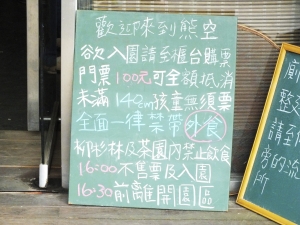 歡迎來到熊空
欲入園請至櫃台購票
門票100元可全額抵消
未滿140cm孩童無須票
全面一律禁帶外食
柳杉林及茶園內禁止飲食
16:00不售票及入園
16:30前離開園區
廁
整
旁的流
所